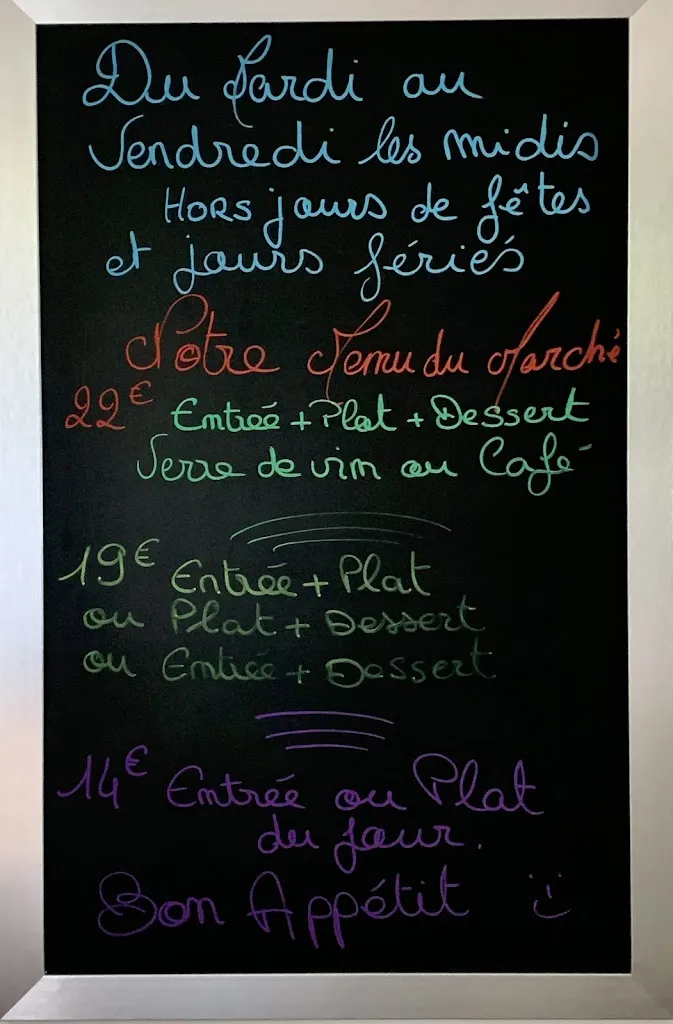 Du Mardi au
Vendredi les midis
HORS jours de fêtes
et jours fériés
Notre Menu du Marché
22€ Entrée + Plat + Dessert
Verre de vin ou Café
19€ Entrée + Plat
ou Plat + Dessert
ou Entrée + Dessert
14€ Entrée ou Plat
du jour.
Bon Appétit